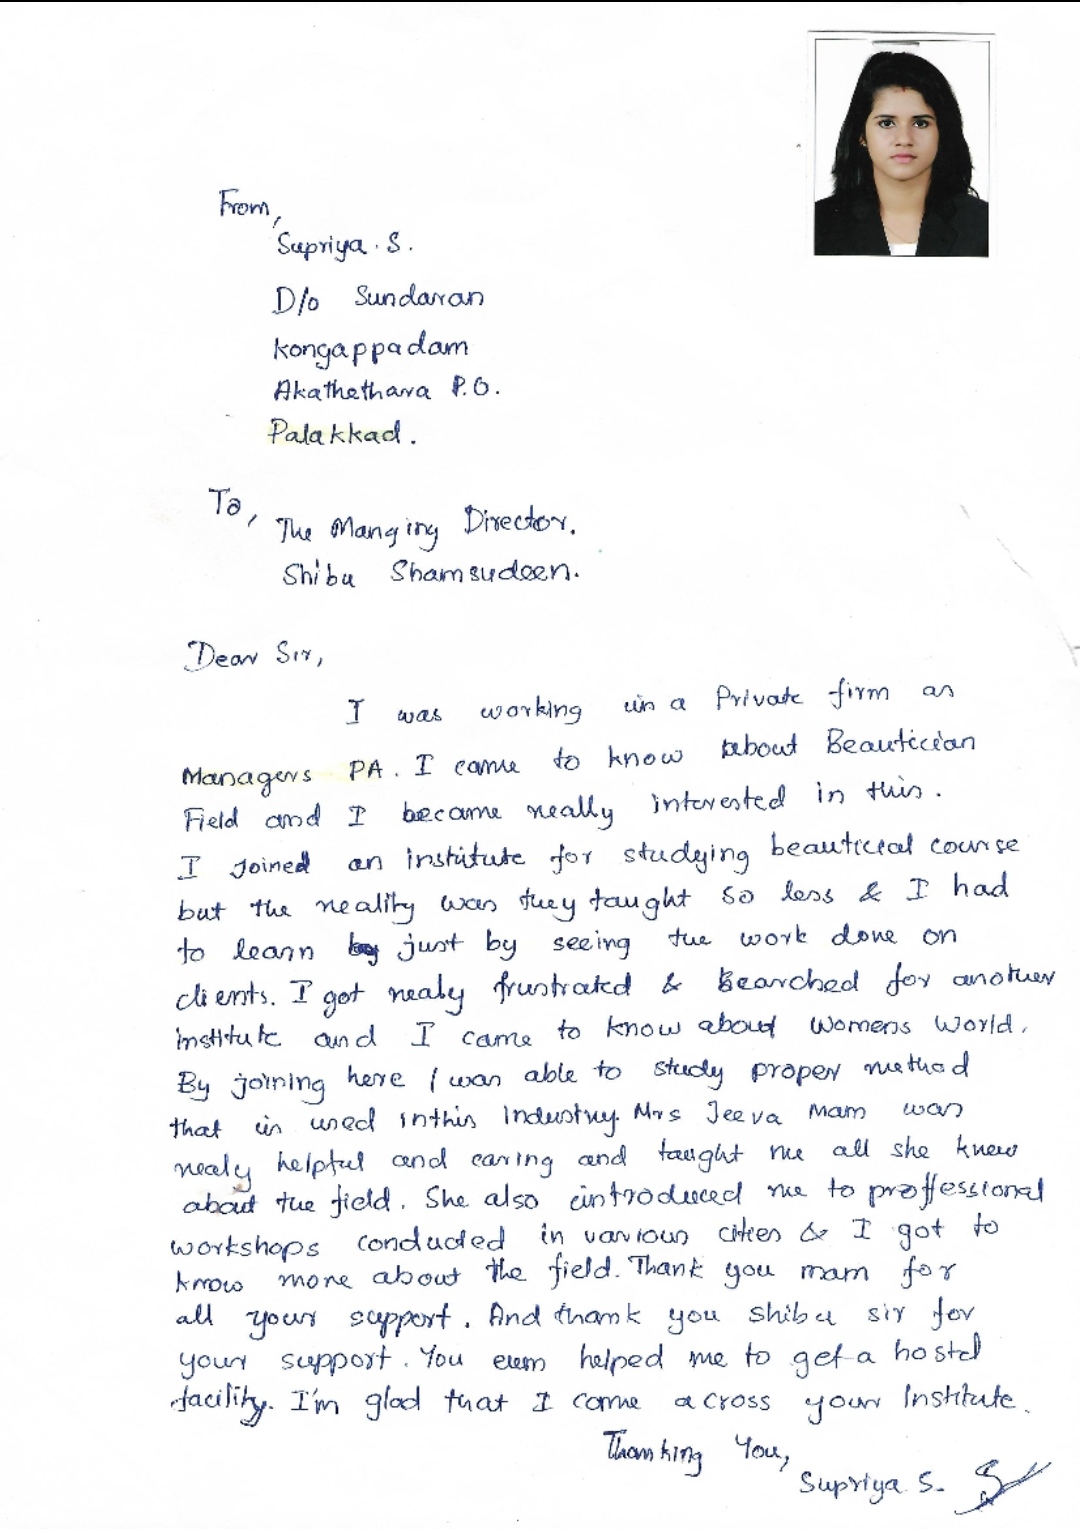 From,
Supriya . S.
D/o Sundaran
Kongappadam
Akathethara P.O.
Palakkad.
To,
The Manging Director.
Shibu Shamsudeen.
Dear Sir,
I was working in a Private firm as
Managers PA. I came to know about Beautician
Field and I became really interested in this.
I Joined an institute for studying beauticial course
but the reality was they taught so less & I had
to learn just by seeing the work done on
clients. I got realy frustrated & Searched for another
institute and I came to know about Womens World.
By joining here I was able to study proper method
that is used in this Industry. Mrs Jeeva Mam was
realy helpful and caring and taught me all she knew
about the field. She also introduced me to proffessional
workshops conducted in various cities & I got to
know more about the field. Thank you mam for
all your support. And thank you Shibu sir for
your support. You even helped me to get a hostel
facility. I'm glad that I came across your Institute.
Thanking You,
Supriya S.